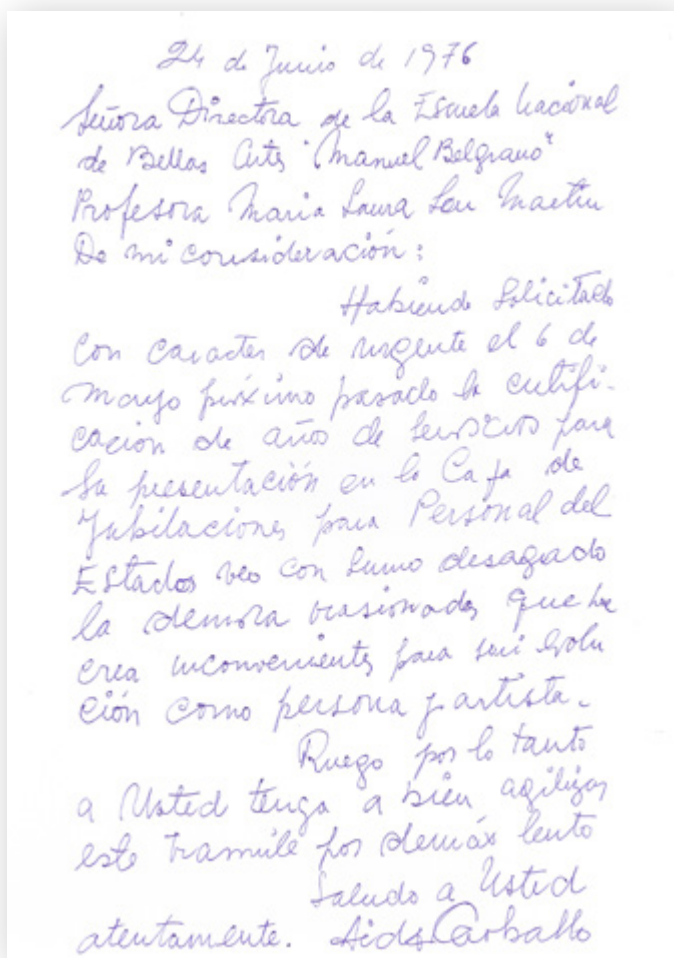 24 de Junio de 1976
Señora Directora de la Escuela Nacional
de Bellas Artes "Manuel Belgrano"
Profesora Maria Laura San Martin
De mi consideración:
Habiendo Solicitado
con caracter de urgente el 6 de
mayo próximo pasado la certifi-
cación de años de servicios para
su presentación en la Caja de
Jubilaciones para Personal del
Estados veo con sumo desagrado
la demora ocasionada, que me
crea inconvenientes para mi evolu
ción como persona y artista.
Ruego por lo tanto
a Usted tenga a bien agilizar
este tramite por demás lento
Saludo a Usted
atentamente. Aida Carballo